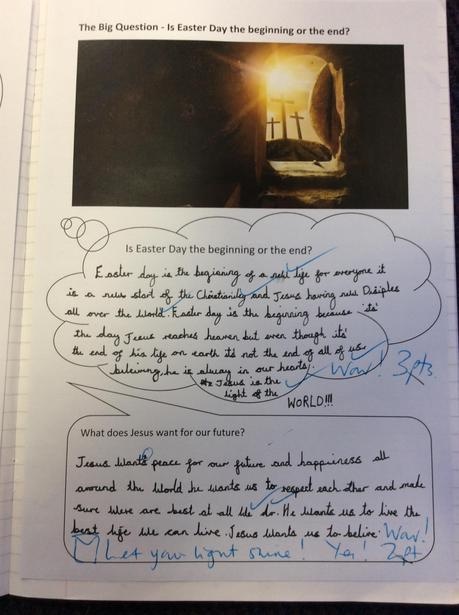 The Big Question - Is Easter Day the beginning or the end?
Is Easter Day the beginning or the end?
Easter day is the beginning of a new life for everyone it
is a new start of the Christianity and Jesus having new Diciples
all over the World. Easter day is the beginning because its'
the day Jesus reaches heaven but even though its'
the end of his life on earth its not the end of all of us
beleiving, he is alway in our hearts.
Jesus is the
light of the WORLD!!!
Wow! 3pts
What does Jesus want for our future?
Jesus wants peace for our future and happiness all
around the World he wants us to respect each other and make
sure were are best at all We do. He wants us to live the
best life We can live. Jesus wants us to belive. Wow!
Let your light shine! Yes! 2pt